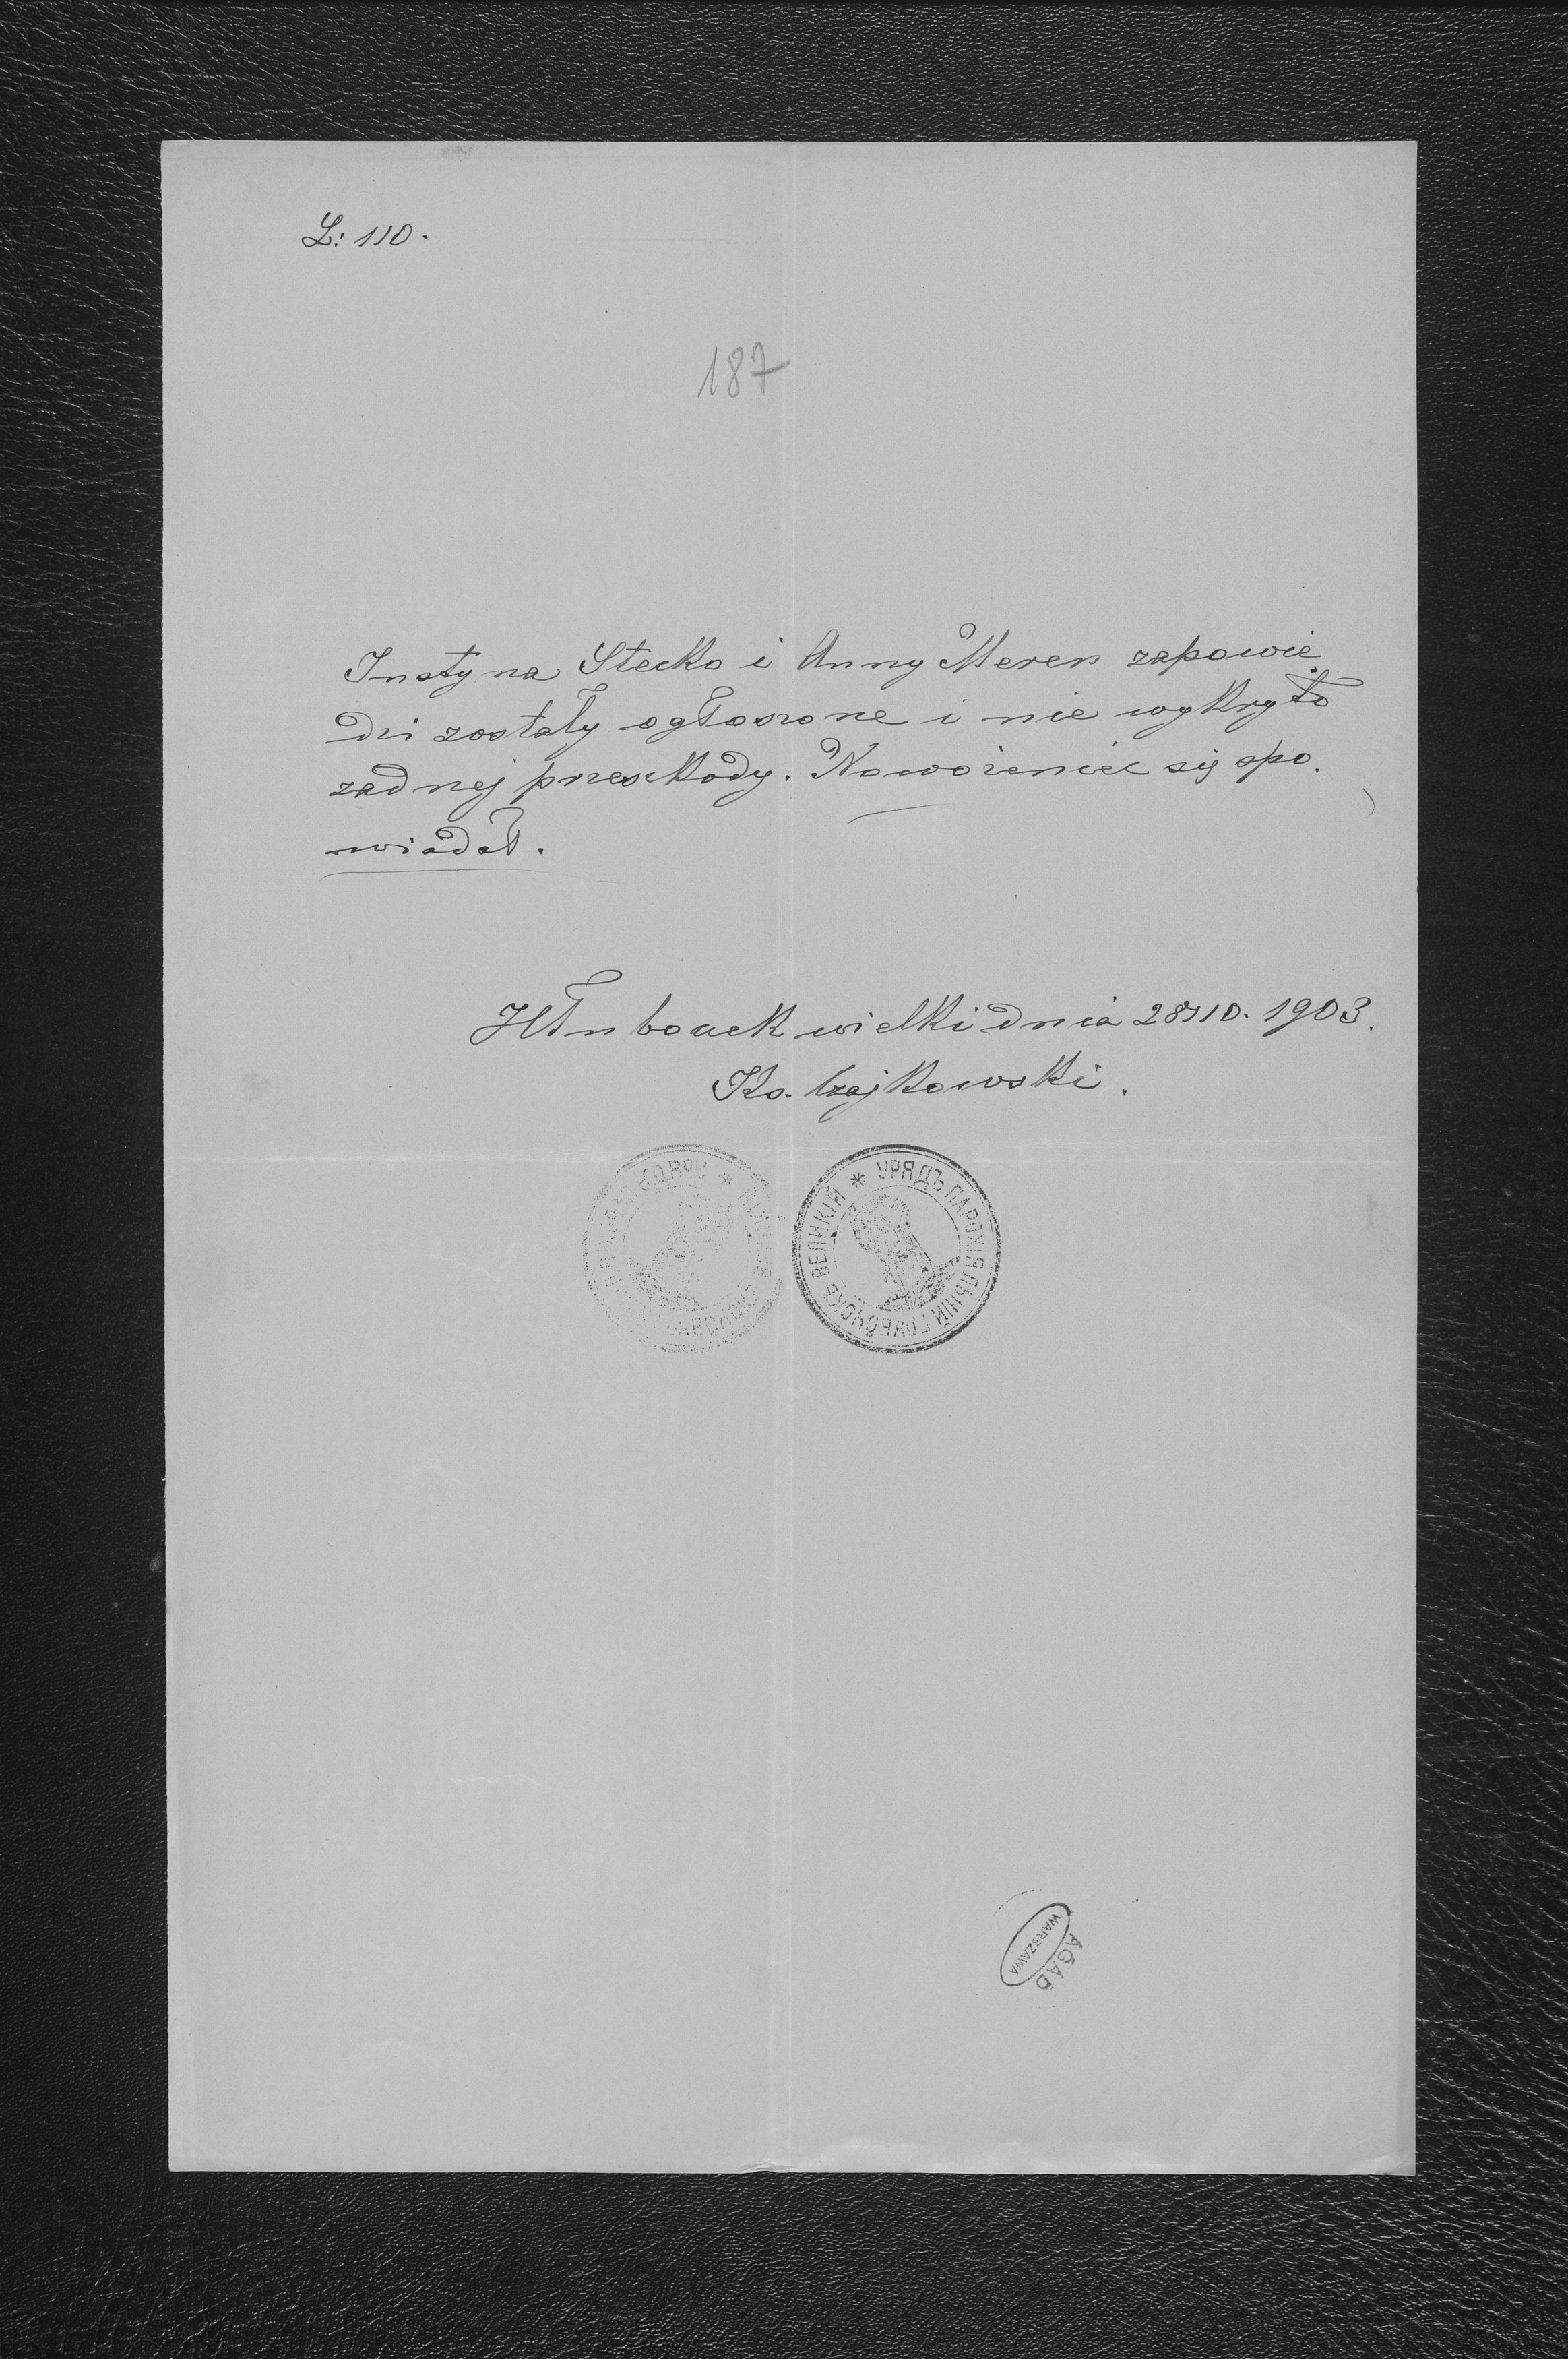 L: 110.
187
Justyna Stecko i Anny Meren zapowie
dzi zostały ogłoszone i nie wykryto
zadnej przeszkody. Nowożeniec się spo
wiadał.
Hłuboczek wielki dnia 28/10. 1903.
Ks. Czajkowski.
УРЯДЪ ПАРОХІЯЛЬНЫЙ ГЛУБОЧОКЪ ВЕЛИКІЙ *
AGAD
WARSZAWA